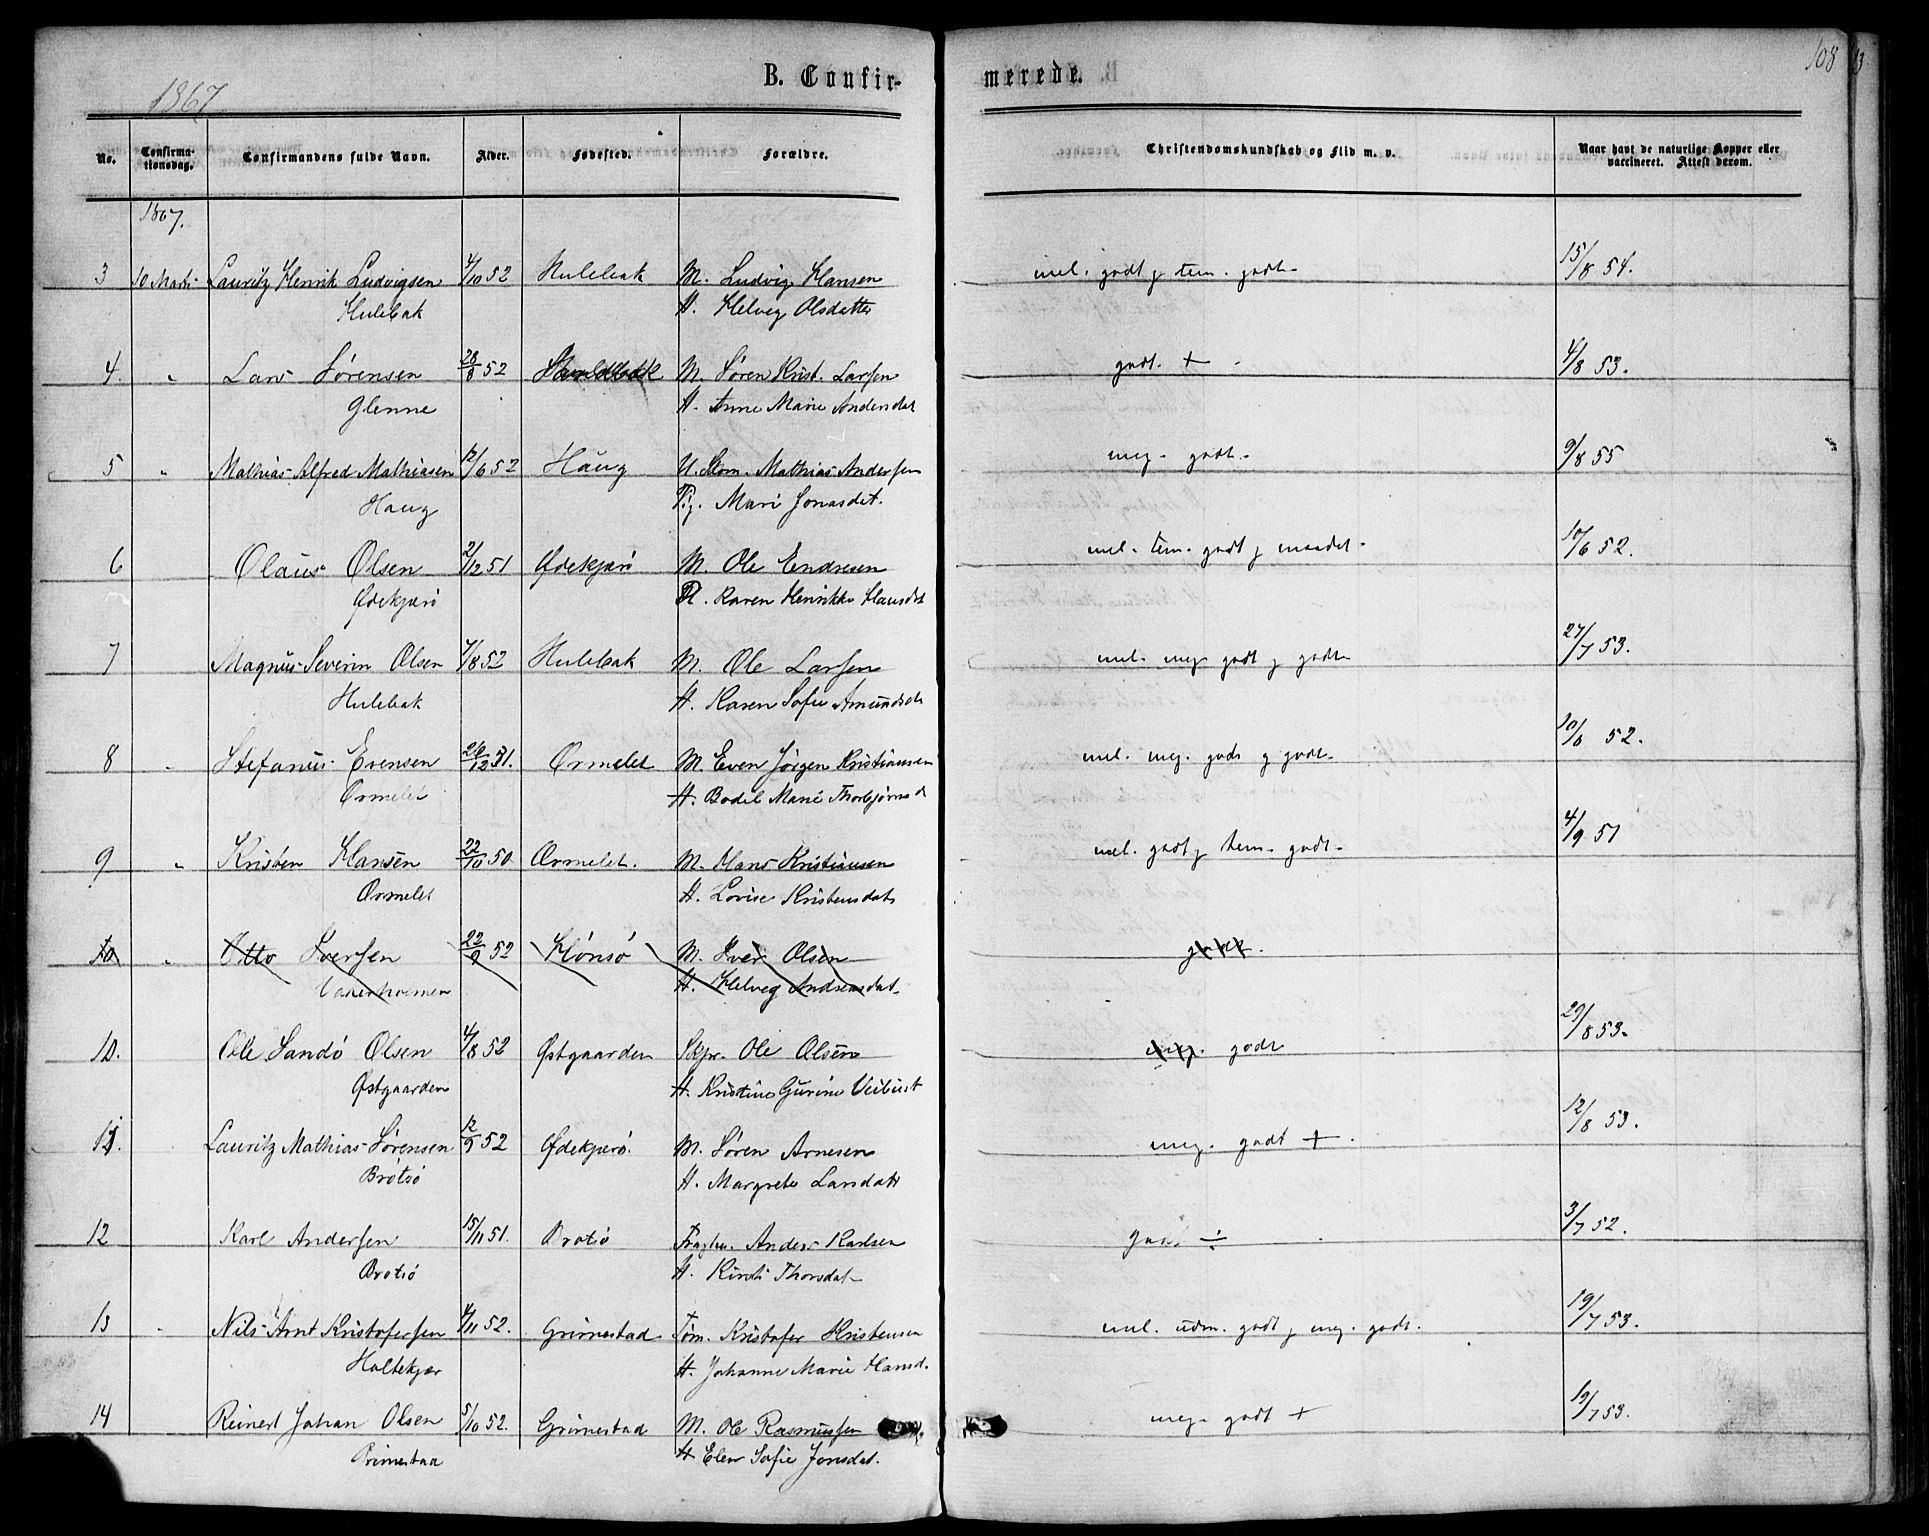 1867
B. Confirmerede.
108
No. Confirmationsdag. Confirmandens fulde Navn. Alder. Fødested. Forældre. Christendomskundskab og Flid m. v. Naar havt de naturlige Kopper eller vaccineret. Attest derom.
1867.
3 10 Marts Lauritz Henrik Ludvigsen 4/10 52 Hulebak M. Ludvig Hansen mel. godt g tem. godt 15/8 54.
Hulebak H. Helvig Olsdatter
4. " Lars Sørensen 28/8 52 M. Søren Krist. Larsen godt. + 4/8 53.
Glenne H. Anne Marie Andersdat
5 " Mathias Alfred Mathiasen 12/6 52 Haug U. Kom. Mathias Andersen meg. godt. 9/8 55
Haug Pig. Mari Jonasdet.
6 Olaus Olsen 2/12 51 Ødekjær M. Ole Endresen mel. tem. godt g maadel. 10/6 52.
Ødekjær H. Karen Henrikke Hansdt
7 Magnus Severin Olsen 7/8 52 Hulebak M. Ole Larsen mel. meg godt g godt 27/7 53.
Hulebak H. Karen Sofie Amundsdt
8 " Stefanus Evensen 26/12 51. Ormelet M. Even Jørgen Kristiansen mel. meg. godt g godt 10/8 52.
Ormelet H. Bodil Marie Thorbjørnsd
9 " Kristen Hansen 22/10 50. Ormelet. M. Hans Kristiansen mel. godt g tem. godt 4/9 51
Ormelet H. Lovise Kristensdat
10 " Otto Iversen 22/9 52 M. Iver Olsen godt.
H. Helveg Andreasdat
10. Ole Sandø Olsen 4/8 52 Østgaarden Skpr. Ole Olsen meg. godt 29/8 53.
Østgaarden H. Kristine Gurine Veibust
11. Lauritz Mathias Sørensen 12/9 52 Ødekjær. M. Søren Arnesen meg. godt + 12/8 53.
Brøtsø H. Margrete Larsdatt
12 Karl Andersen 15/11 51. Brøtsø Anders Karlsen godt ÷ 3/7 52.
Brøtsø H. Kirsti Thorsdat
13 Nils Arnt Kristofersen 4/11 52. Grimestad Tøm. Kristofer Kristensen mel. udm. godt g meg. godt. 19/7 53.
Holtekjær H. Johanne Marie Hansd.
14 Reinert Johan Olsen 5/10 52. Grimestad M. Ole Rasmussen meg. godt + 19/7 53.
Grimestad H. Elen Sofie Jonsdat.